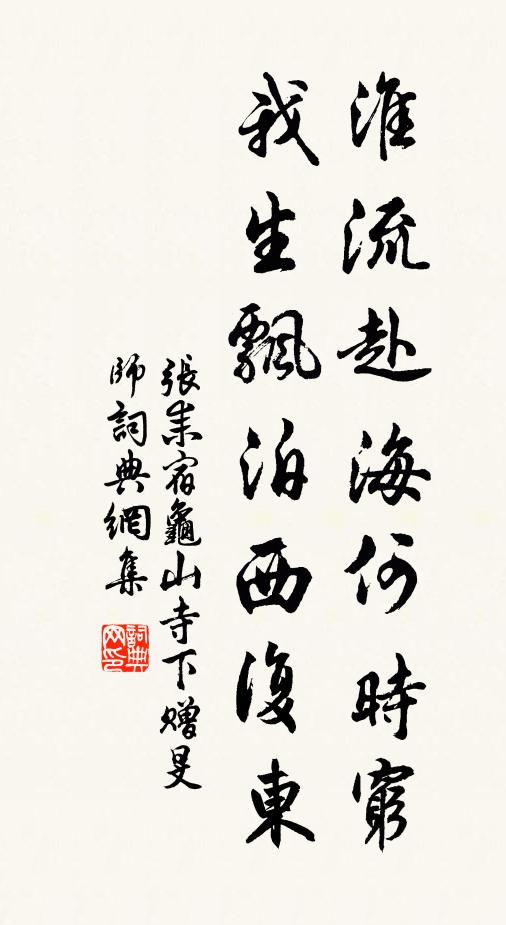 淮流赴海何時窮
我生飄泊西復東
張耒宿龜山寺下贈旻
師詞典網集
詞典
网印